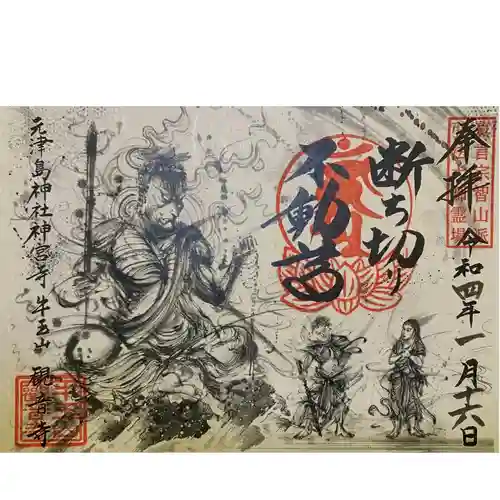 奉拝
令和四年一月十六日
断ち切り
不動尊
元津島神社神宮寺 牛玉山 観音寺